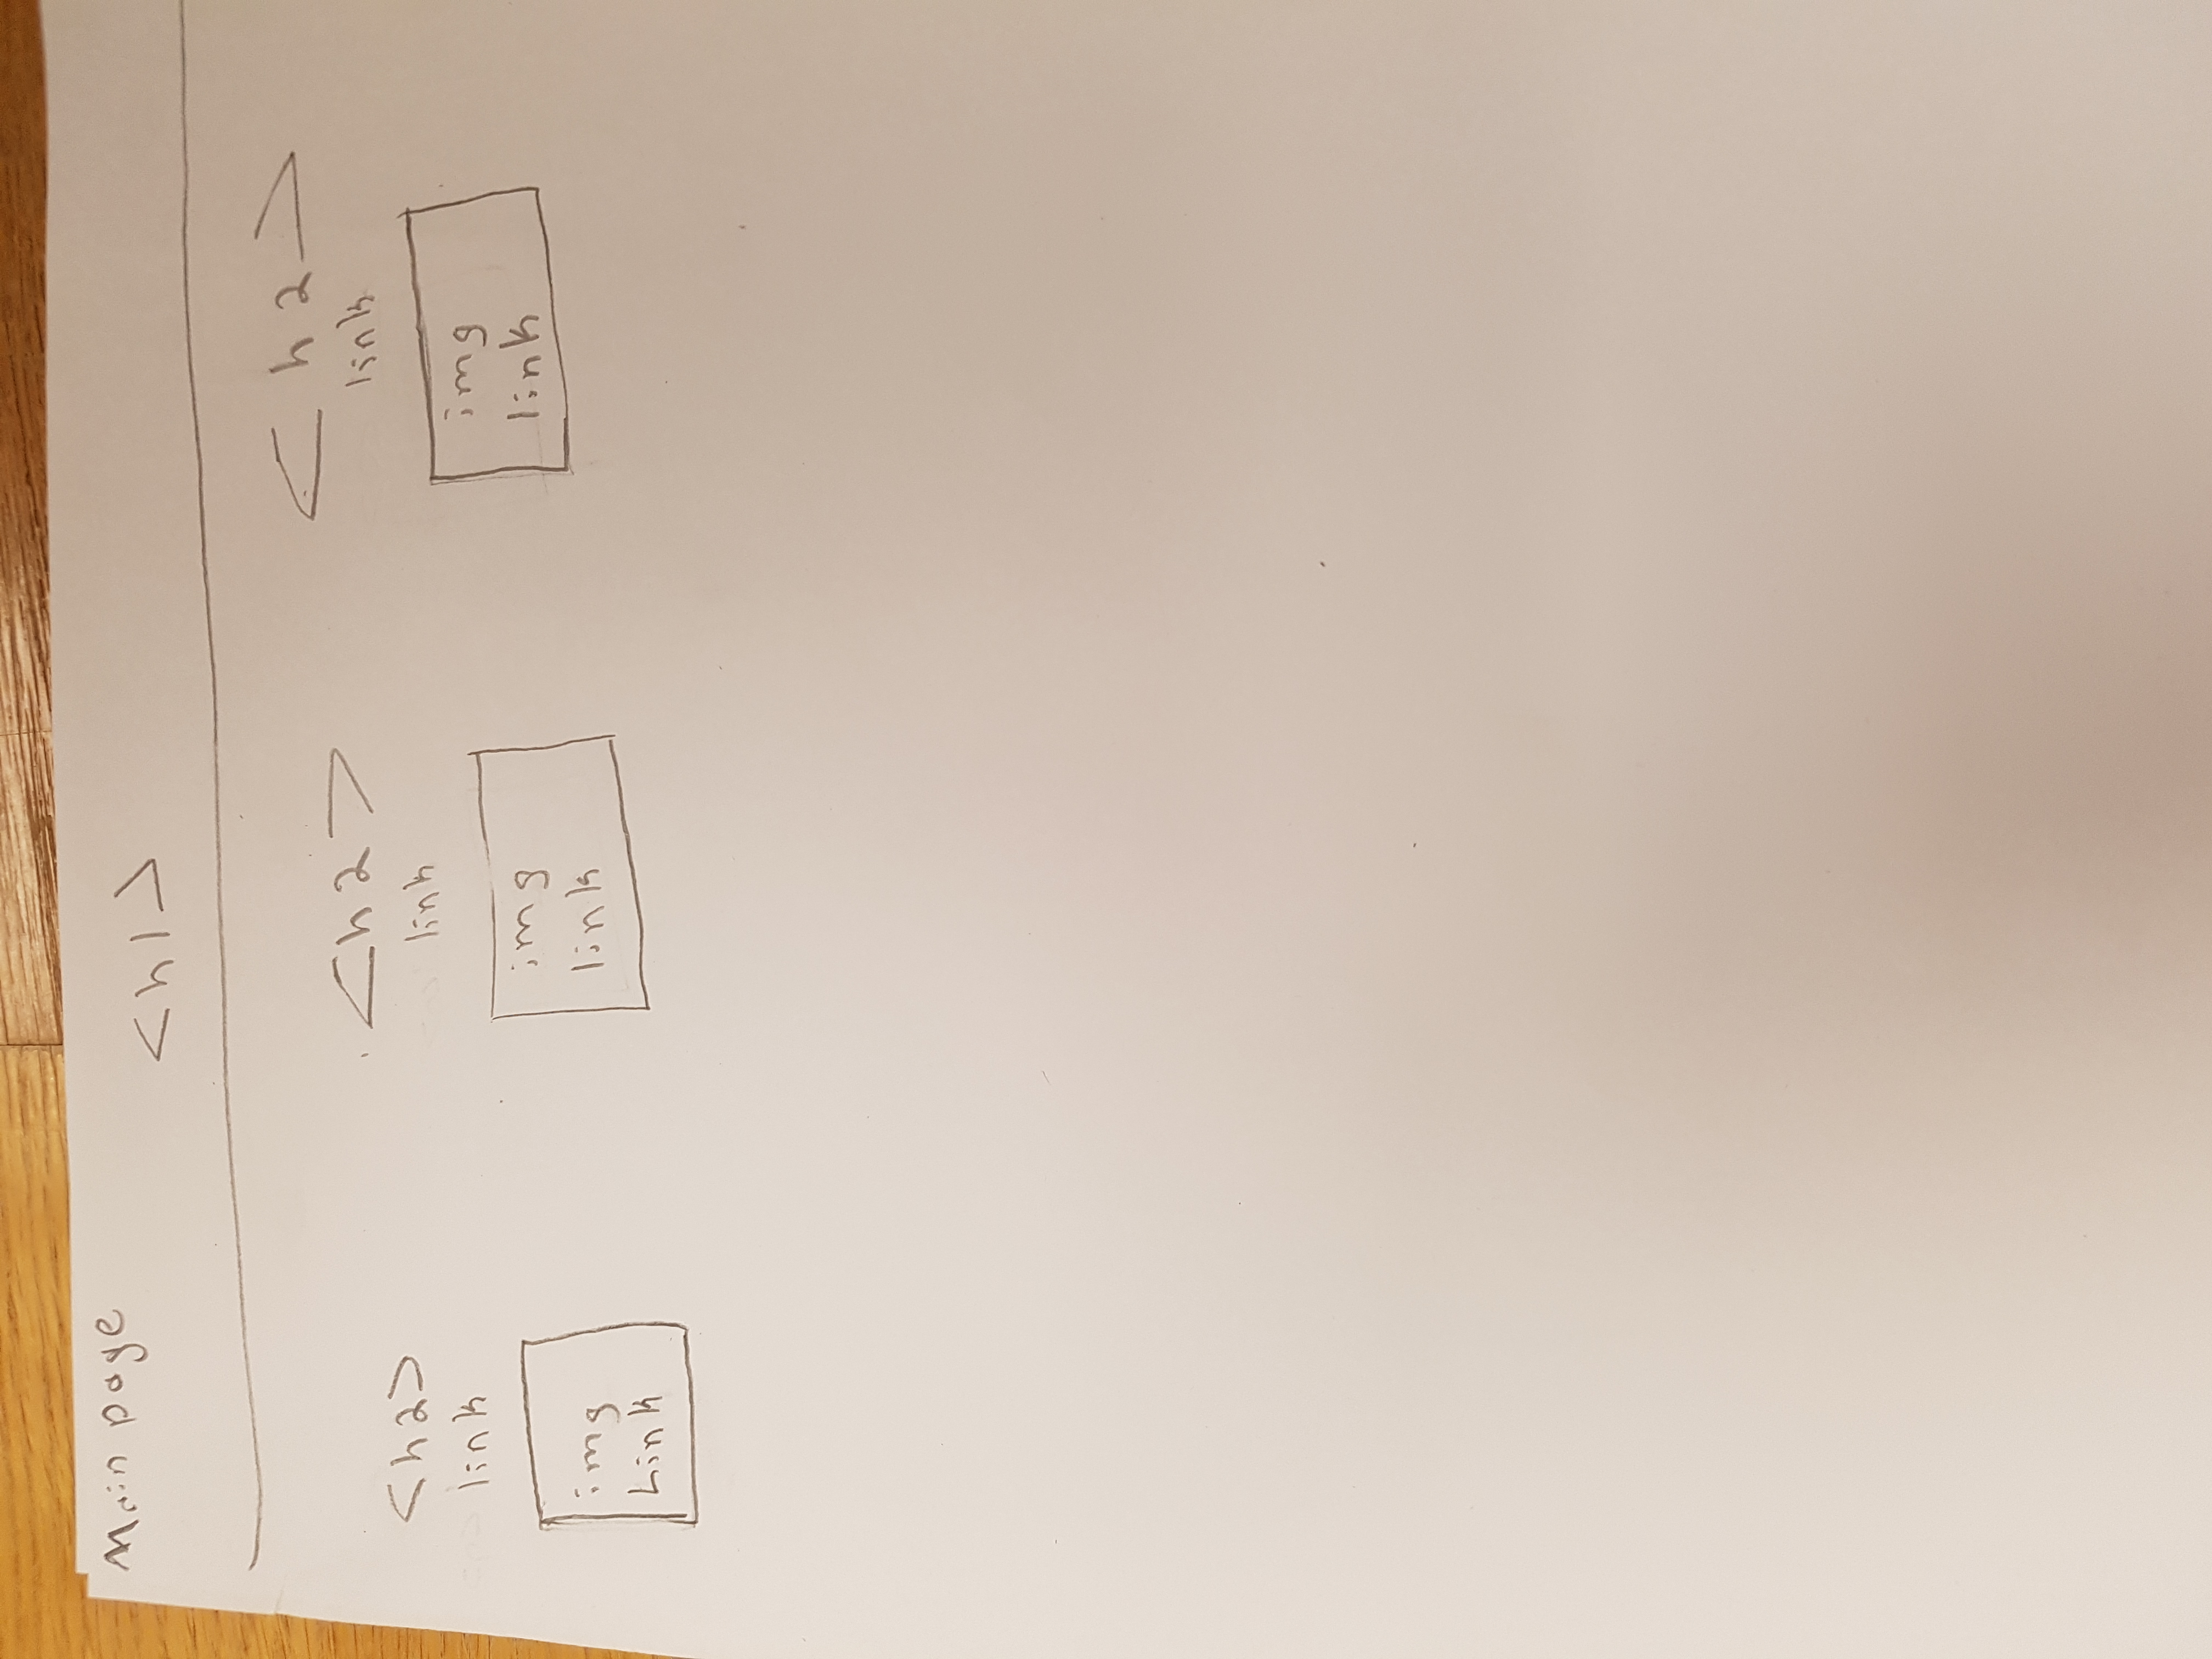 Main page
<h1>
<h2>
link
img
Link
<h2>
link
img
link
<h2>
link
img
link